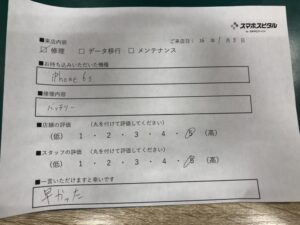 スマホスピタル
■来店内容
ご来店日: 26年 1月 8日
☑ 修理 □ データ移行 □ メンテナンス
■お持ち込みいただいた機種
iPhone 6s
■修理内容
バッテリー
■店舗の評価 (丸を付けて評価してください)
(低) 1 ・ 2 ・ 3 ・ 4 ・ 5 (高)
■スタッフの評価 (丸を付けて評価してください)
(低) 1 ・ 2 ・ 3 ・ 4 ・ 5 (高)
■一言いただけますと幸いです
早かった